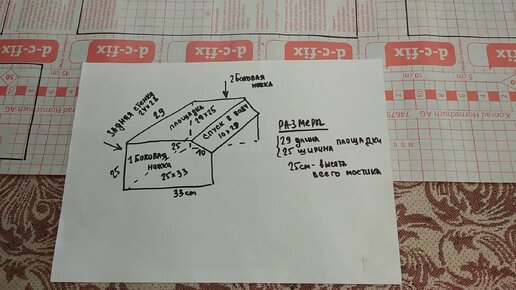 d-c-fix
d-c-fix
d-c-fix
d-c-fix
45 cm
50
2 БОКОВАЯ
НОЖКА
ЗАДНЯЯ СТЕНКА
29
ПЛОЩАДКА
29×25
СПУСК В ВОДУ
10×29
РАЗМЕРЫ
29 ДЛИНА ПЛОЩАДКИ
25 ШИРИНА
25см - ВЫСОТА
ВСЕГО МОСТИКА
25
10
1 БОКОВАЯ
НОЖКА
25×33
25
33 см